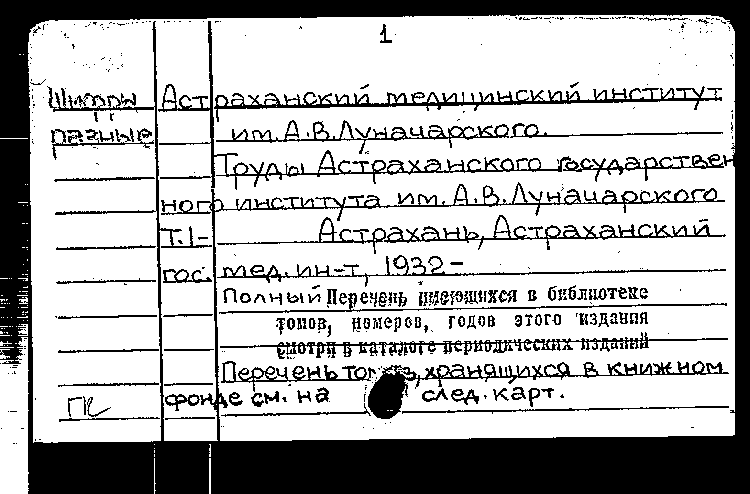 1
Шифры Астраханский медицинский институт
разные им. А.В. Луначарского.
Труды Астраханского государствен
ного института им. А.В. Луначарского
Т.1- Астрахань, Астраханский
гос. мед. ин-т, 1932-
Полный Перечень имеющихся в библиотеке
томов, номеров, годов этого издания
смотри в каталоге периодических изданий
Перечень томов, хранящихся в книжном
фонде см. на след. карт.
ГК